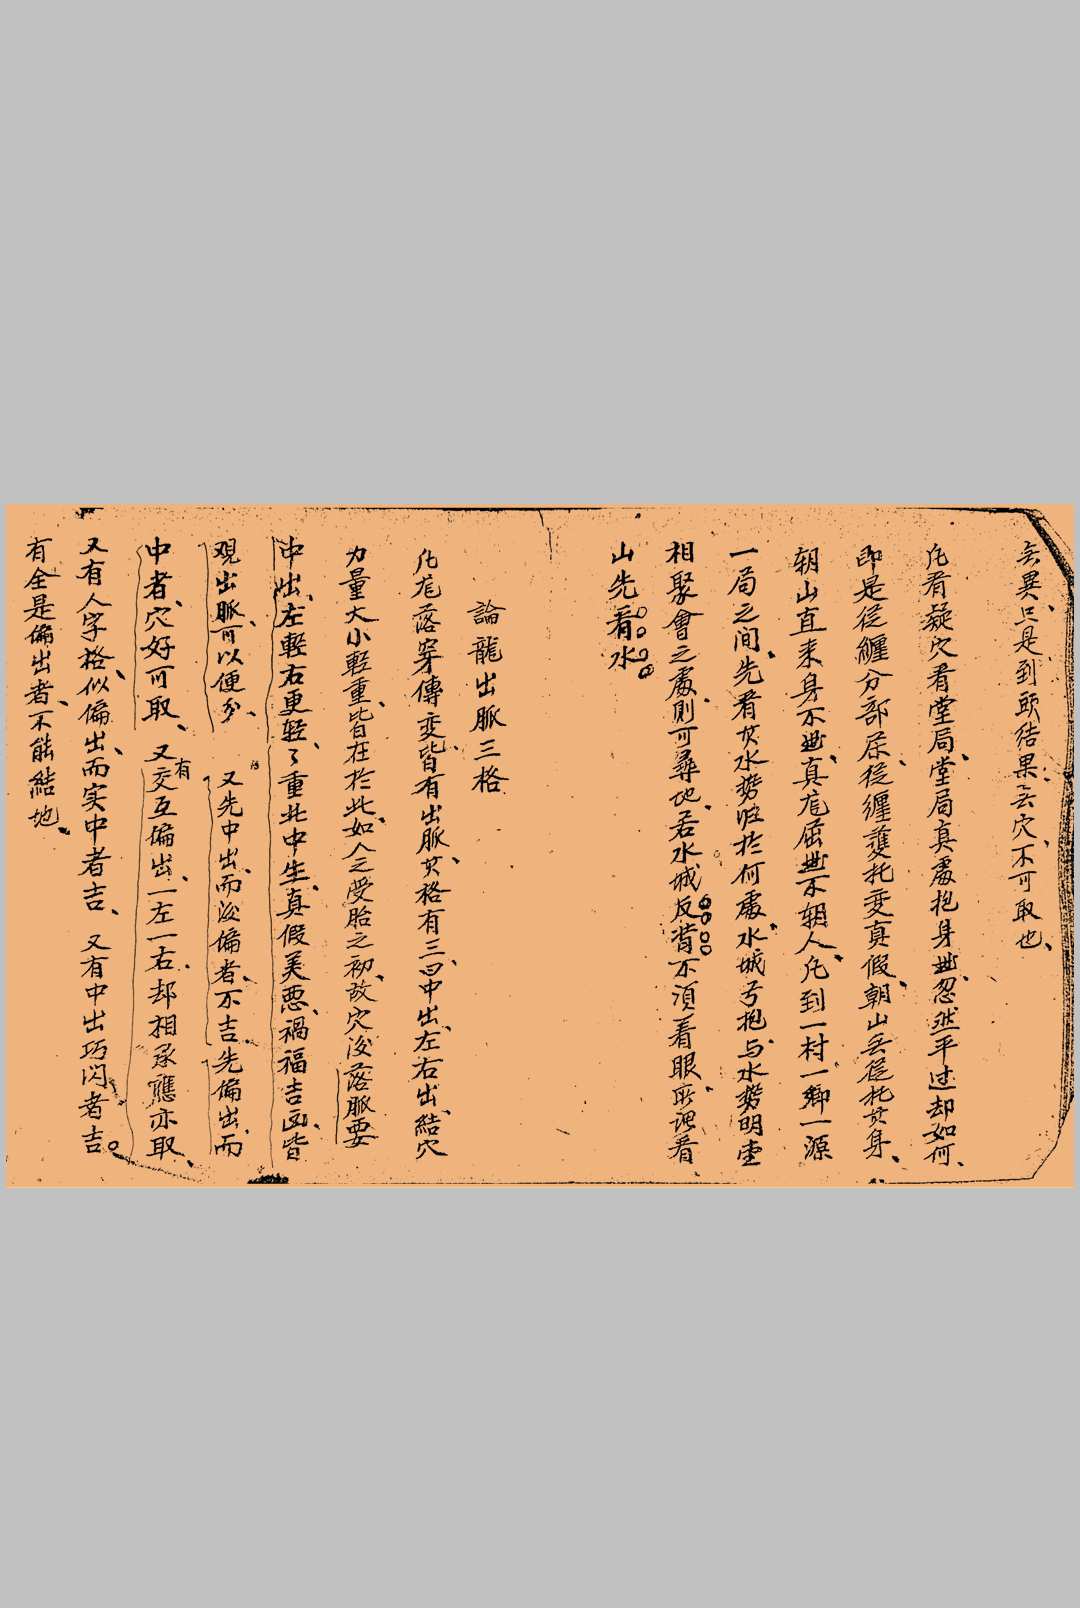 無異、只是到頭結果、無穴、不可取也、
凡看凝穴看堂局、堂局真處抱身 、忽然平过却如何、
即是從纏分部 、從纏護托变真假、朝山無從托其身、
朝山直来身不 、真龙 不朝人、凡到一村一鄉一源
一局之间、先看其水势 於何處、水城弓抱、与水势明堂
相聚會之處、則可尋地、若水城反背不湏着眼、所謂看
山先看水
論龍出脈三格
凡龙落穿傳变、皆有出脈、其格有三、曰中出、左右出、結穴
力量大小輕重、皆在於此、如人之受胎之初、故穴后落脈要
中出、左輕右更轻、々重此中生、真假美恶、禍福吉凶、皆
观出脈、可以便分、又先中出、而後偏者、不吉、先偏出、而
中者、穴好可取、又有交互偏出、一左一右、却相承應亦取、
又有人字格、似偏出、而实中者吉、又有中出巧闪者吉。
有全是偏出者、不能結地、